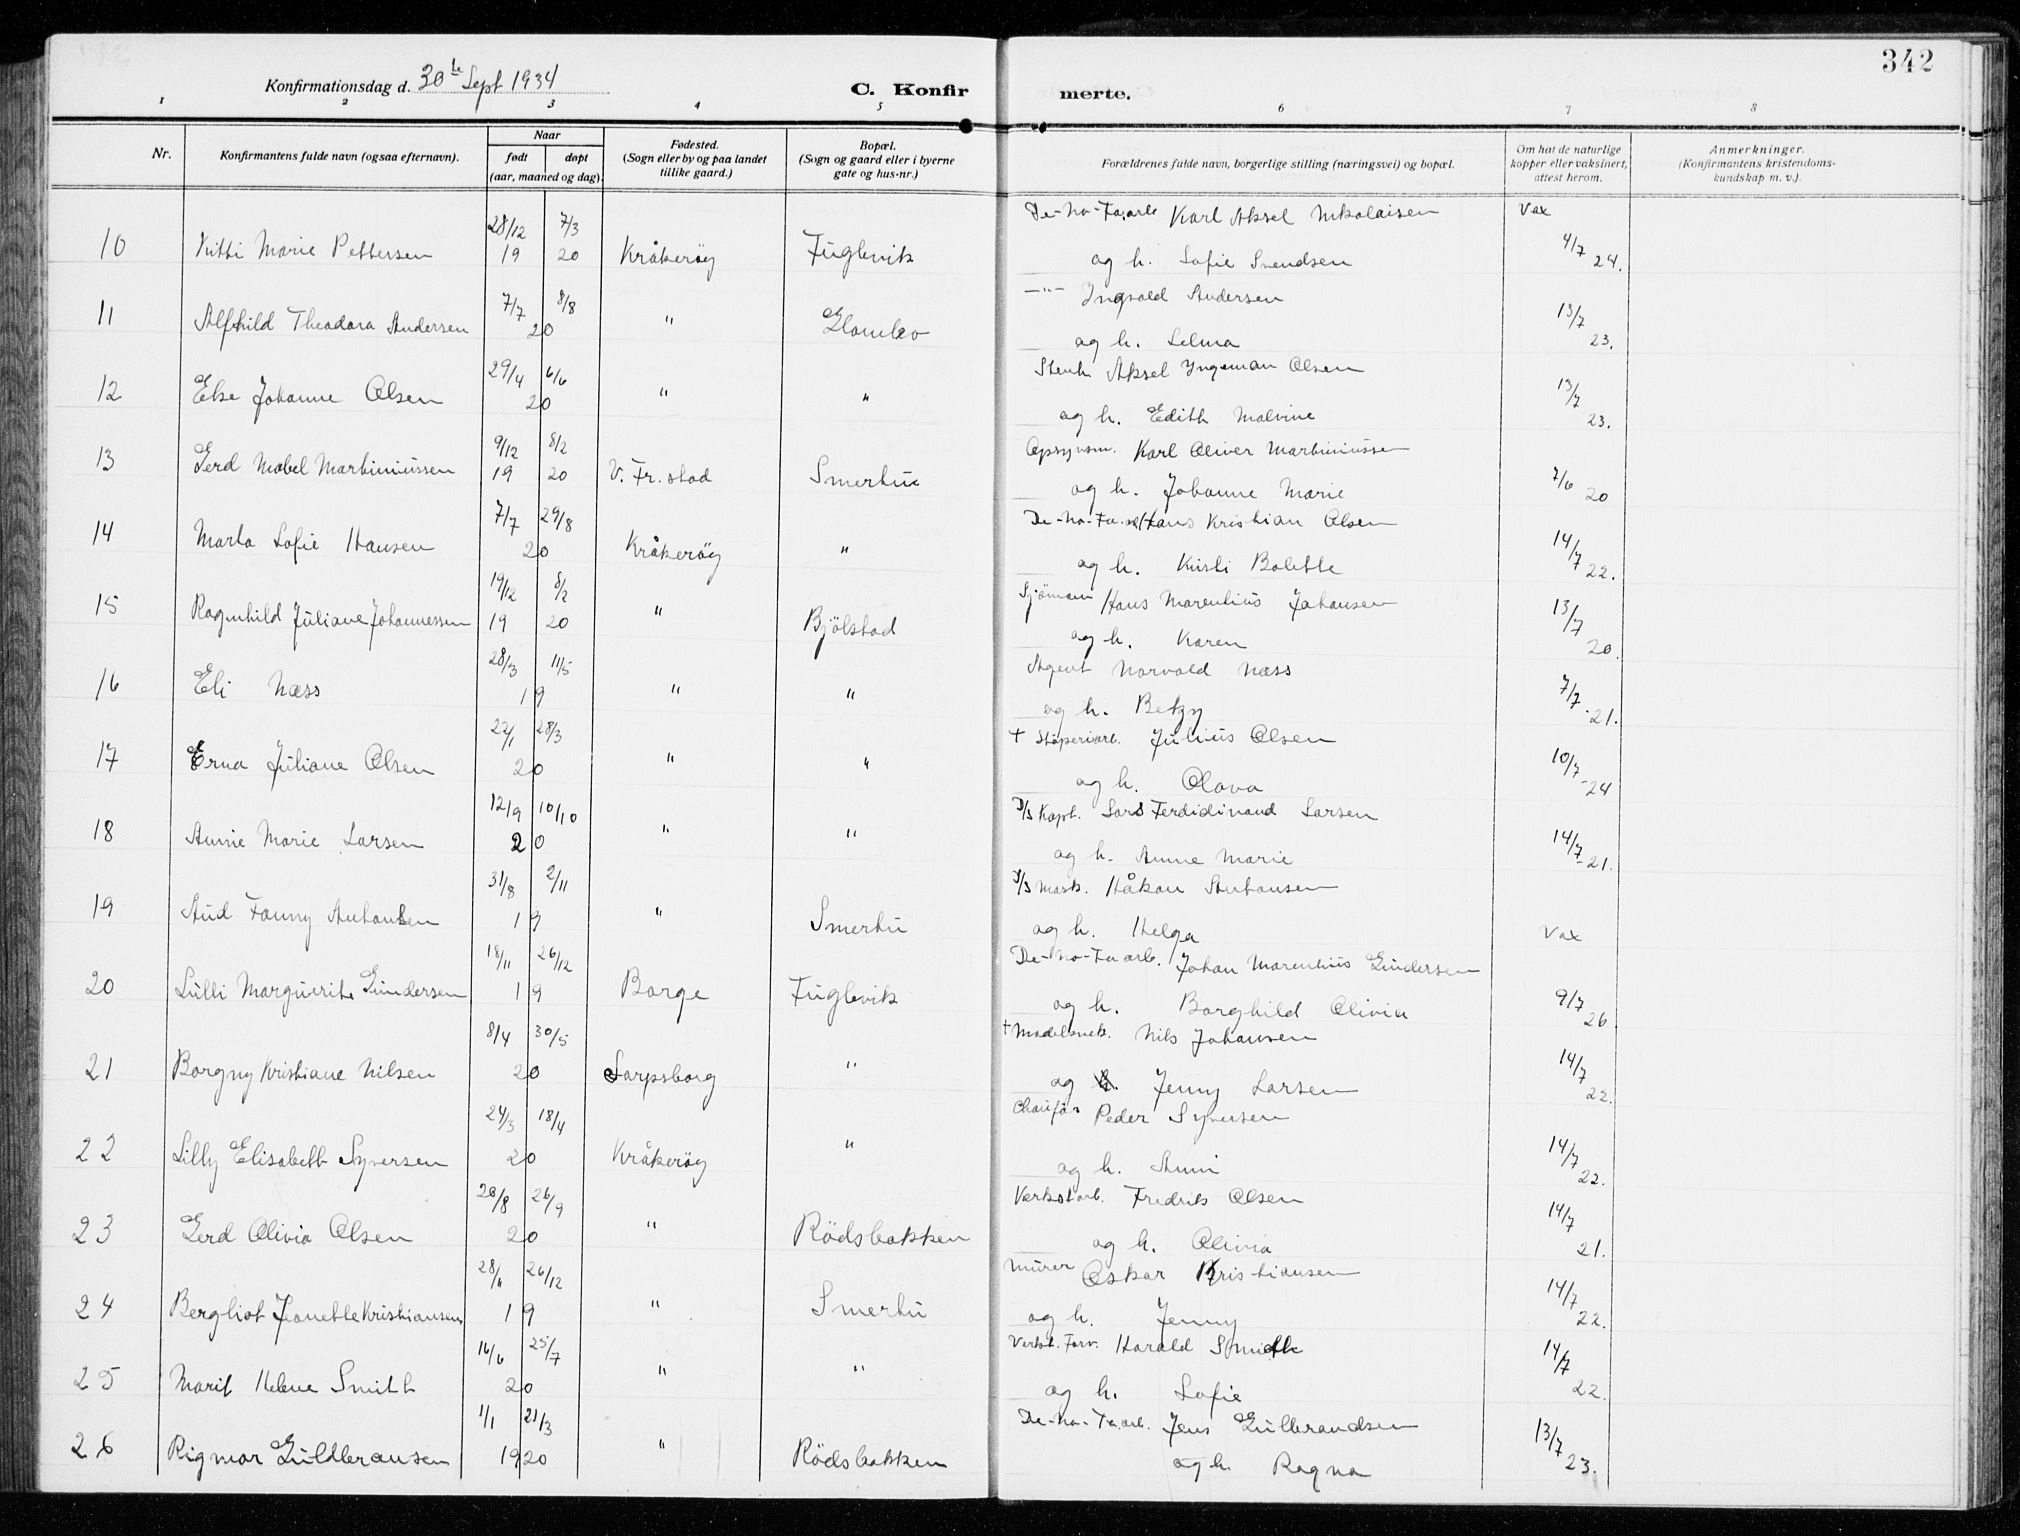 342
Konfirmationsdag d. 30te Sept 1934
C. Konfirmerte.
1 2 3 4 5 6 7 8
Nr.
Konfirmantens fulde navn (ogsaa efternavn).
Naar
født døpt
(aar, maaned og dag).
Fødested.
(Sogn eller by og paa landet
tillike gaard.)
Bopæl.
(Sogn og gaard eller i byerne
gate og hus-nr.)
Forældrenes fulde navn, borgerlige stilling (næringsvei) og bopæl.
Om hat de naturlige
kopper eller vaksinert,
attest herom.
Anmerkninger.
(Konfirmantens kristendoms-
kundskap m. v.).
28/12 7/3 De-No-Fa.arb. Karl Aksel Nikolaisen Vax
10 Kitti Marie Pettersen 19 20 Kråkeröy Fuglevik og h. Sofie Svendsen 4/7 24.
7/7 8/8 —"— Ingvald Andersen
11 Alfhild Theodora Andersen 20 " Glombo og h. Selma 13/7 23.
29/4 6/6 Aksel Ingeman Olsen
12 Else Johanne Olsen 20 " " og h. Edith Malvine 13/7 23.
9/12 8/2 Opsynsm. Karl Oliver Martiniussen
13 Gerd Mabel Martiniussen 19 20 V. Fr.stad Smertu og h. Johanne Marie 7/6 20
7/7 29/8 De-No-Fa. Hans Kristian Olsen
14 Marta Sofie Hansen 20 Kråkeröy " og h. Kristi Bolette 14/7 22.
19/12 8/2 Sjömann Hans Marentius Johansen
15 Ragnhild Juliane Johannessen 19 20 " Bjölstad og h. Karen 13/7 20.
28/3 11/5 Agent Norvald Næss
16 Eli Næss 19 " " og h. Betzy 7/7-21.
22/1 28/3 † Stöperiarb. Julius Olsen
17 Erna Juliane Olsen 20 " " og h. Olava 10/7-24
12/9 10/10 D/S Kapt. Lars Ferdidinand Larsen
18 Annie Marie Larsen 20 " " og h. Anne Marie 14/7-21.
31/8 2/11 D/S Mask. Håkon Antonsen
19 Aud Fanny Antonsen 19 " Smertu og h. Helga Vax
18/11 26/12 De-No-Fa.arb. Johan Marentius Gundersen
20 Lulli Marguerite Gundersen 19 Borge Fuglevik og h. Borghild Olivia 9/7 26
8/4 30/5 † Modelsnek. Nils Johansen
21 Borgny Kristiane Nilsen 20 Sarpsborg " og h. Jenny Larsen 14/7 22.
24/3 18/4 Chauför Peder Syversen
22 Lilly Elisabeth Syversen 20 Kråkeröy " og h. Anni 14/7 22.
28/8 26/9 Verkstarb. Fredrik Olsen
23 Gerd Olivia Olsen 20 " Rödsbakken og h. Olivia 14/7 21.
28/11 26/12 Murer Oskar Kristiansen
24 Bergliot Jeanette Kristiansen 19 " Smertu og h. Jenny 14/7 22.
16/6 25/7 Verkst. Forv. Harald Smith
25 Marit Helene Smith 20 " " og h. Sofie 14/7 22.
1/1 21/3 De-No-Fa.arb. Jens Gulbrandsen
26 Rigmor Guldbransen 1920 " Rödsbakken og h. Ragna 13/7 23.